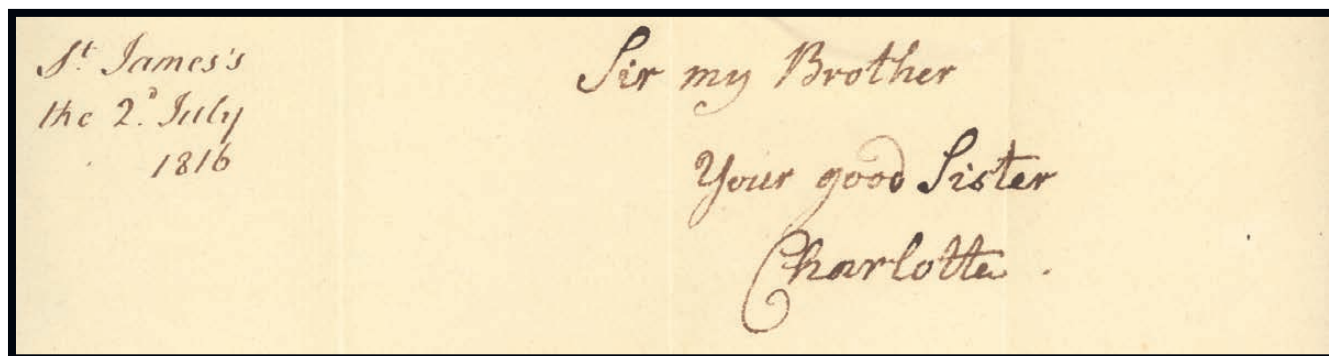 St. James's
the 2d. July
1816
Sir my Brother
Your good Sister
Charlotte.